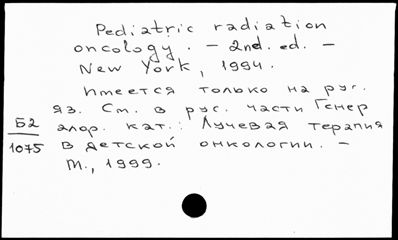 Pediatric radiation
oncology. - 2nd. ed. -
New York, 1994.
Имеется только на рус.
яз. См. в рус. части Генер
Б2
алор. кат.: Лучевая терапия
1075
в детской онкологии. -
М., 1999.